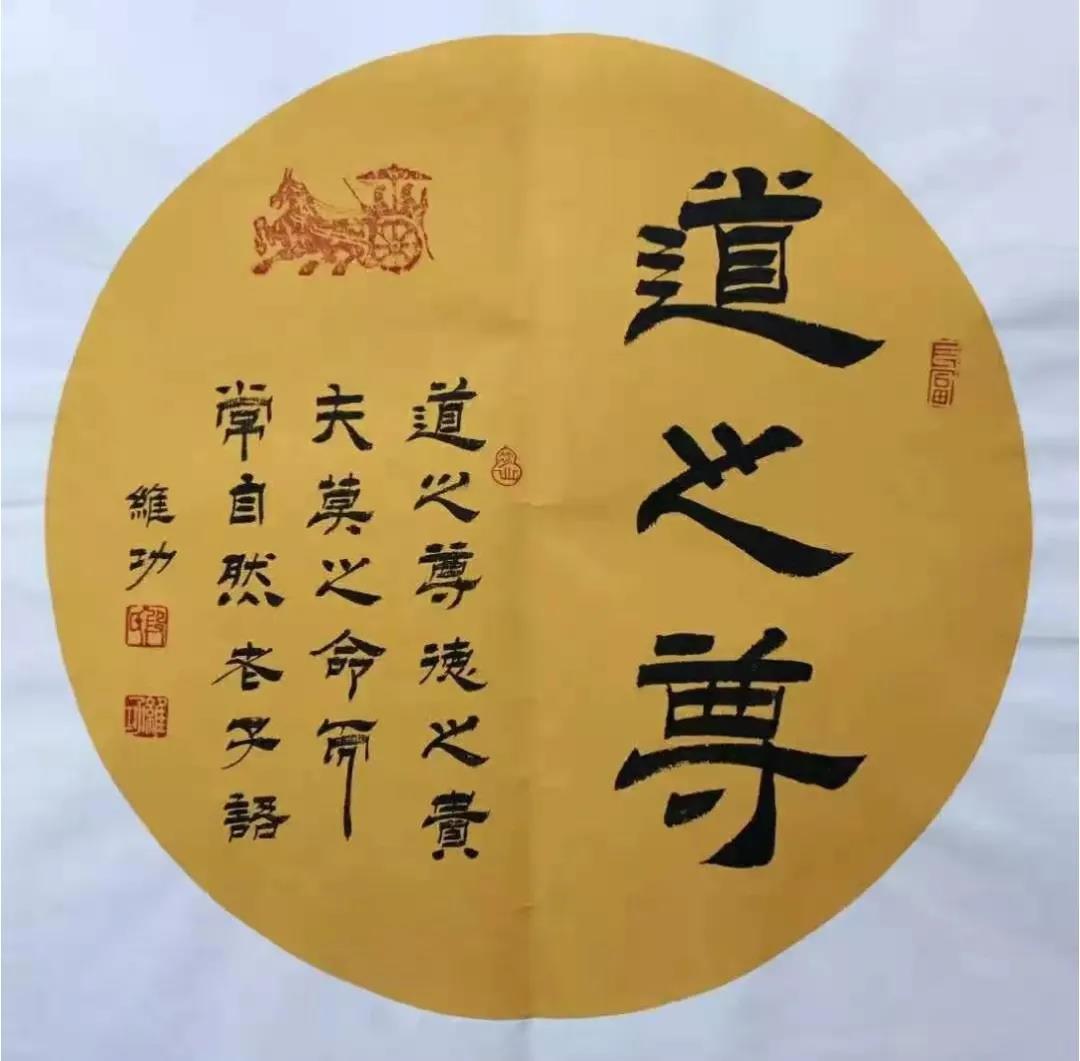 道之尊
道之尊德之貴
夫莫之命而
常自然老子語
維功
段氏
維功